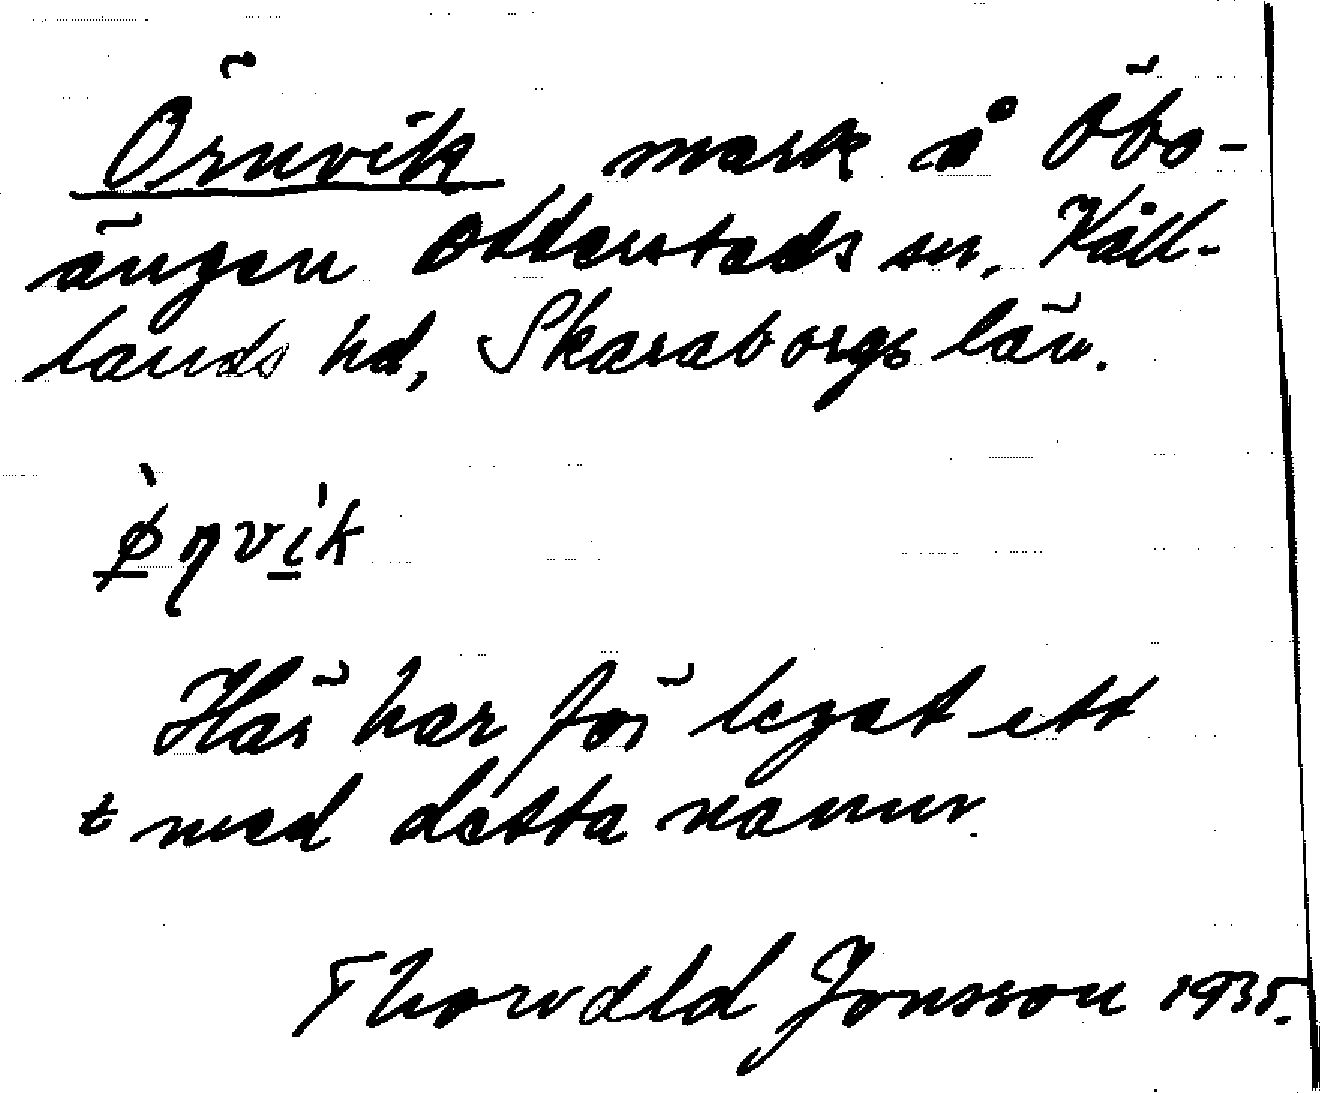 Örnvik mark å Öbo-
ängen Otterstads sn, Kål-
lands hd, Skaraborgs län.
ø̀ŋvík
Här har för legat ett
t med detta namn.
Thorvald Jonsson 1935.